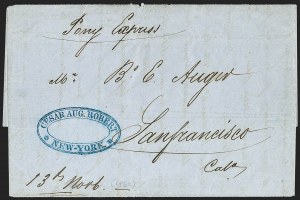 Pony Express
Mr. B. E. Auger
CESAR AUG. ROBERT
NEW-YORK
Sanfrancisco
Cala
13th Novb.